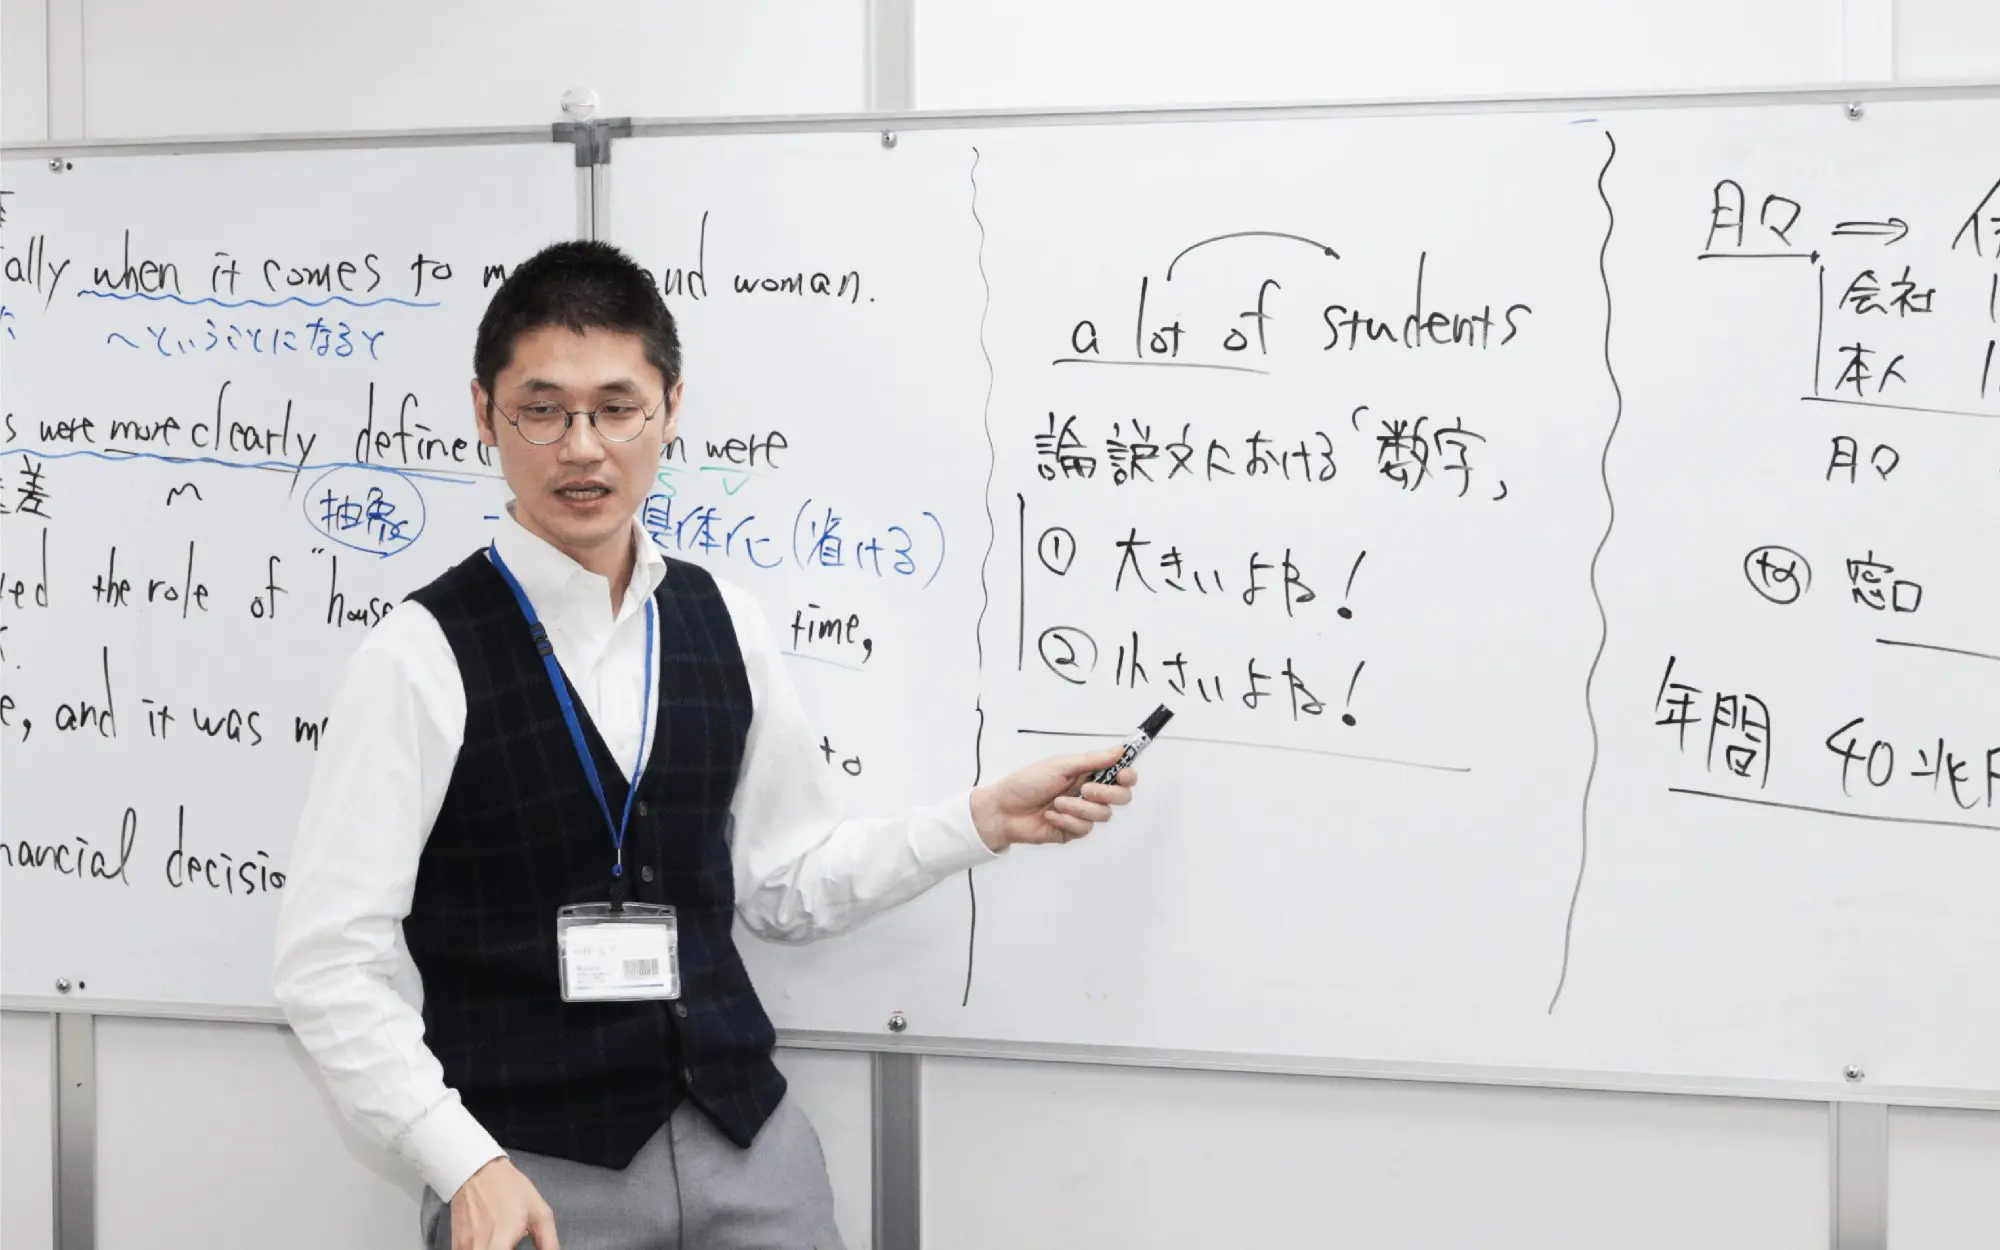 ially when it comes to and woman.
〜ということになると
s were more clearly define were
差
抽象
具体化(省ける)
the role of "house time,
e, and it was to
nancial decisio
a lot of students
論説文における「数字」
① 大きいよね!
② 小さいよね!
月々 ⇒
会社
本人
月々
窓口
年間 40兆円